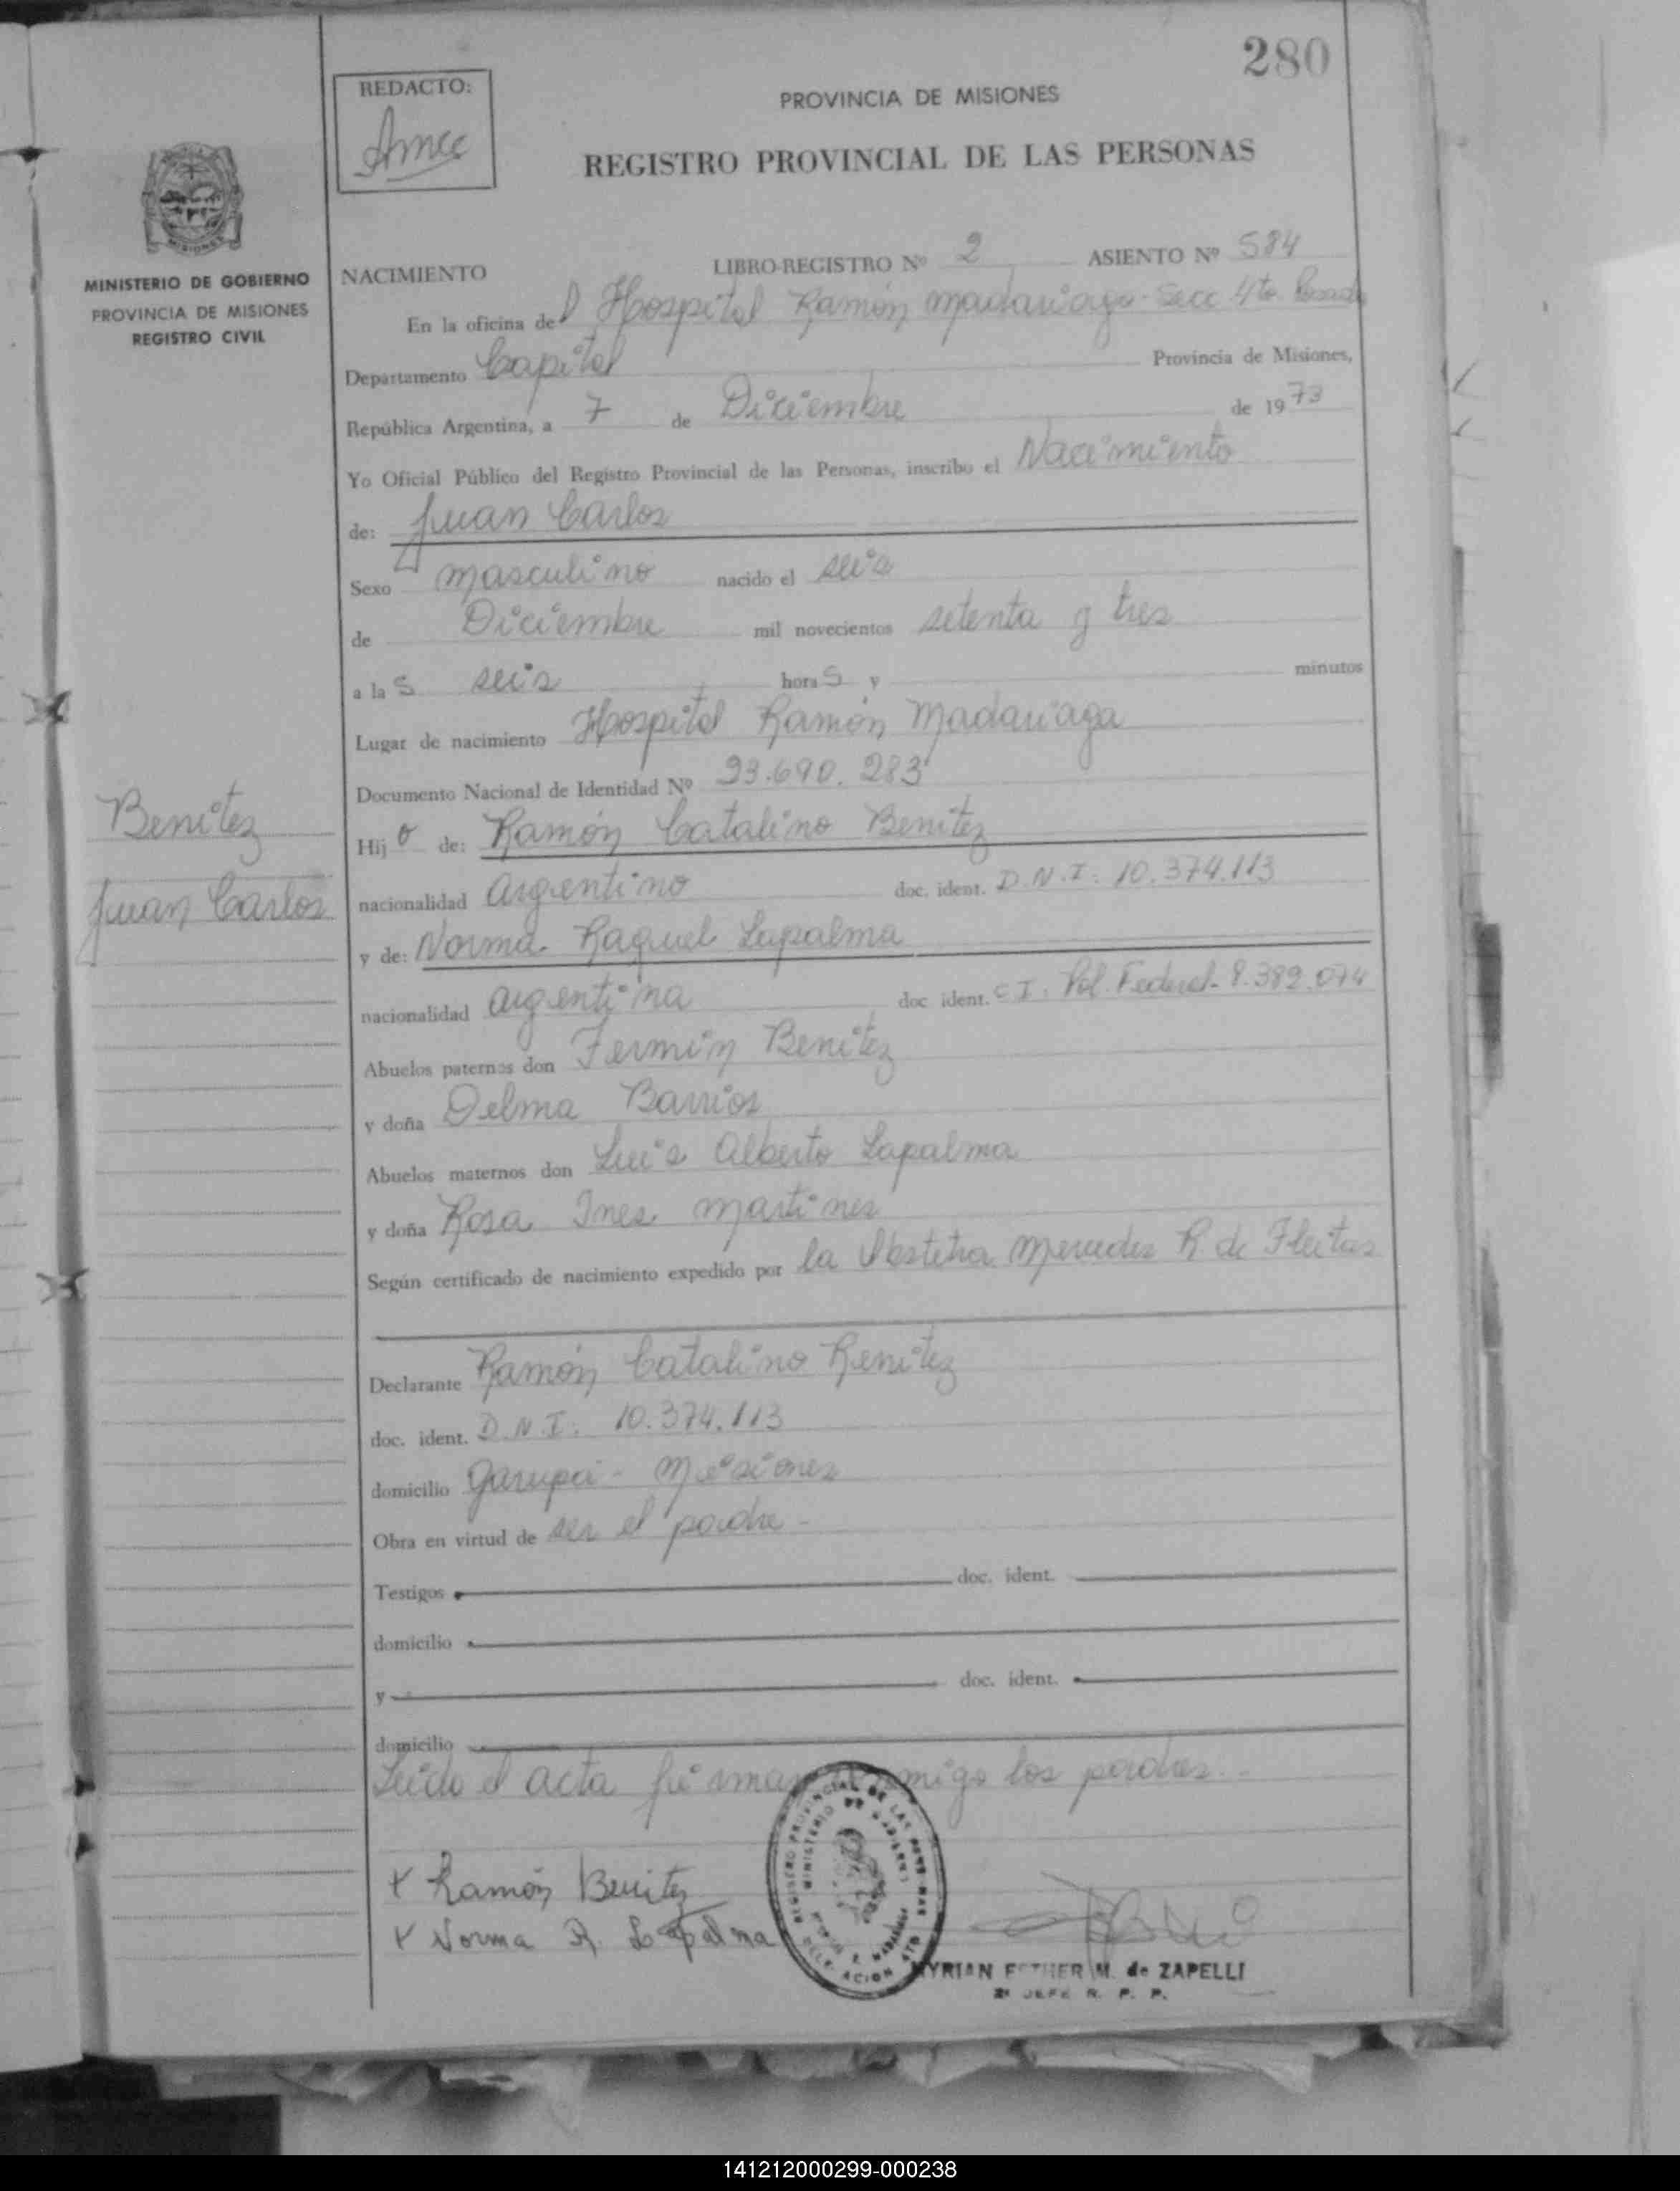 280
REDACTO:
PROVINCIA DE MISIONES
REGISTRO PROVINCIAL DE LAS PERSONAS
MISIONES
MINISTERIO DE GOBIERNO
PROVINCIA DE MISIONES
REGISTRO CIVIL
NACIMIENTO LIBRO-REGISTRO Nº 2 ASIENTO Nº 584
En la oficina del Hospital Ramón Madariaga - Secc 4ta Posadas
Departamento Capital Provincia de Misiones,
República Argentina, a 7 de Diciembre de 1973
Yo Oficial Público del Registro Provincial de las Personas, inscribo el Nacimiento
de: Juan Carlos
Sexo masculino nacido el seis
de Diciembre mil novecientos setenta y tres
a las seis horas y minutos
Lugar de nacimiento Hospital Ramón Madariaga
Documento Nacional de Identidad Nº 23.690.283
Benitez
Juan Carlos
Hijo de: Ramón Catalino Benitez
nacionalidad argentino doc. ident. D.N.I: 10.374.113
y de: Norma Raquel Lapalma
nacionalidad argentina doc ident. C I. Pol. Federal- 8.382.074
Abuelos paternos don Fermín Benitez
y doña Delma Barrios
Abuelos maternos don Luis Alberto Lapalma
y doña Rosa Ines Martines
Según certificado de nacimiento expedido por la Obstetra Mercedes R. de Fleitas
Declarante Ramón Catalino Benitez
doc. ident. D.N.I: 10.374.113
domicilio Garupá - Misiones
Obra en virtud de ser el padre -
Testigos doc. ident.
domicilio
y doc. ident.
domicilio
Leida el acta firman conmigo los padres. -
x Ramón Benitez
x Norma R. Lapalma
REGISTRO PROVINCIAL DE LAS PERSONAS
MINISTERIO DE GOBIERNO
DELEGACION 4TA
MYRIAN ESTHER M. de ZAPELLI
2º JEFE R. P. P.
141212000299-000238